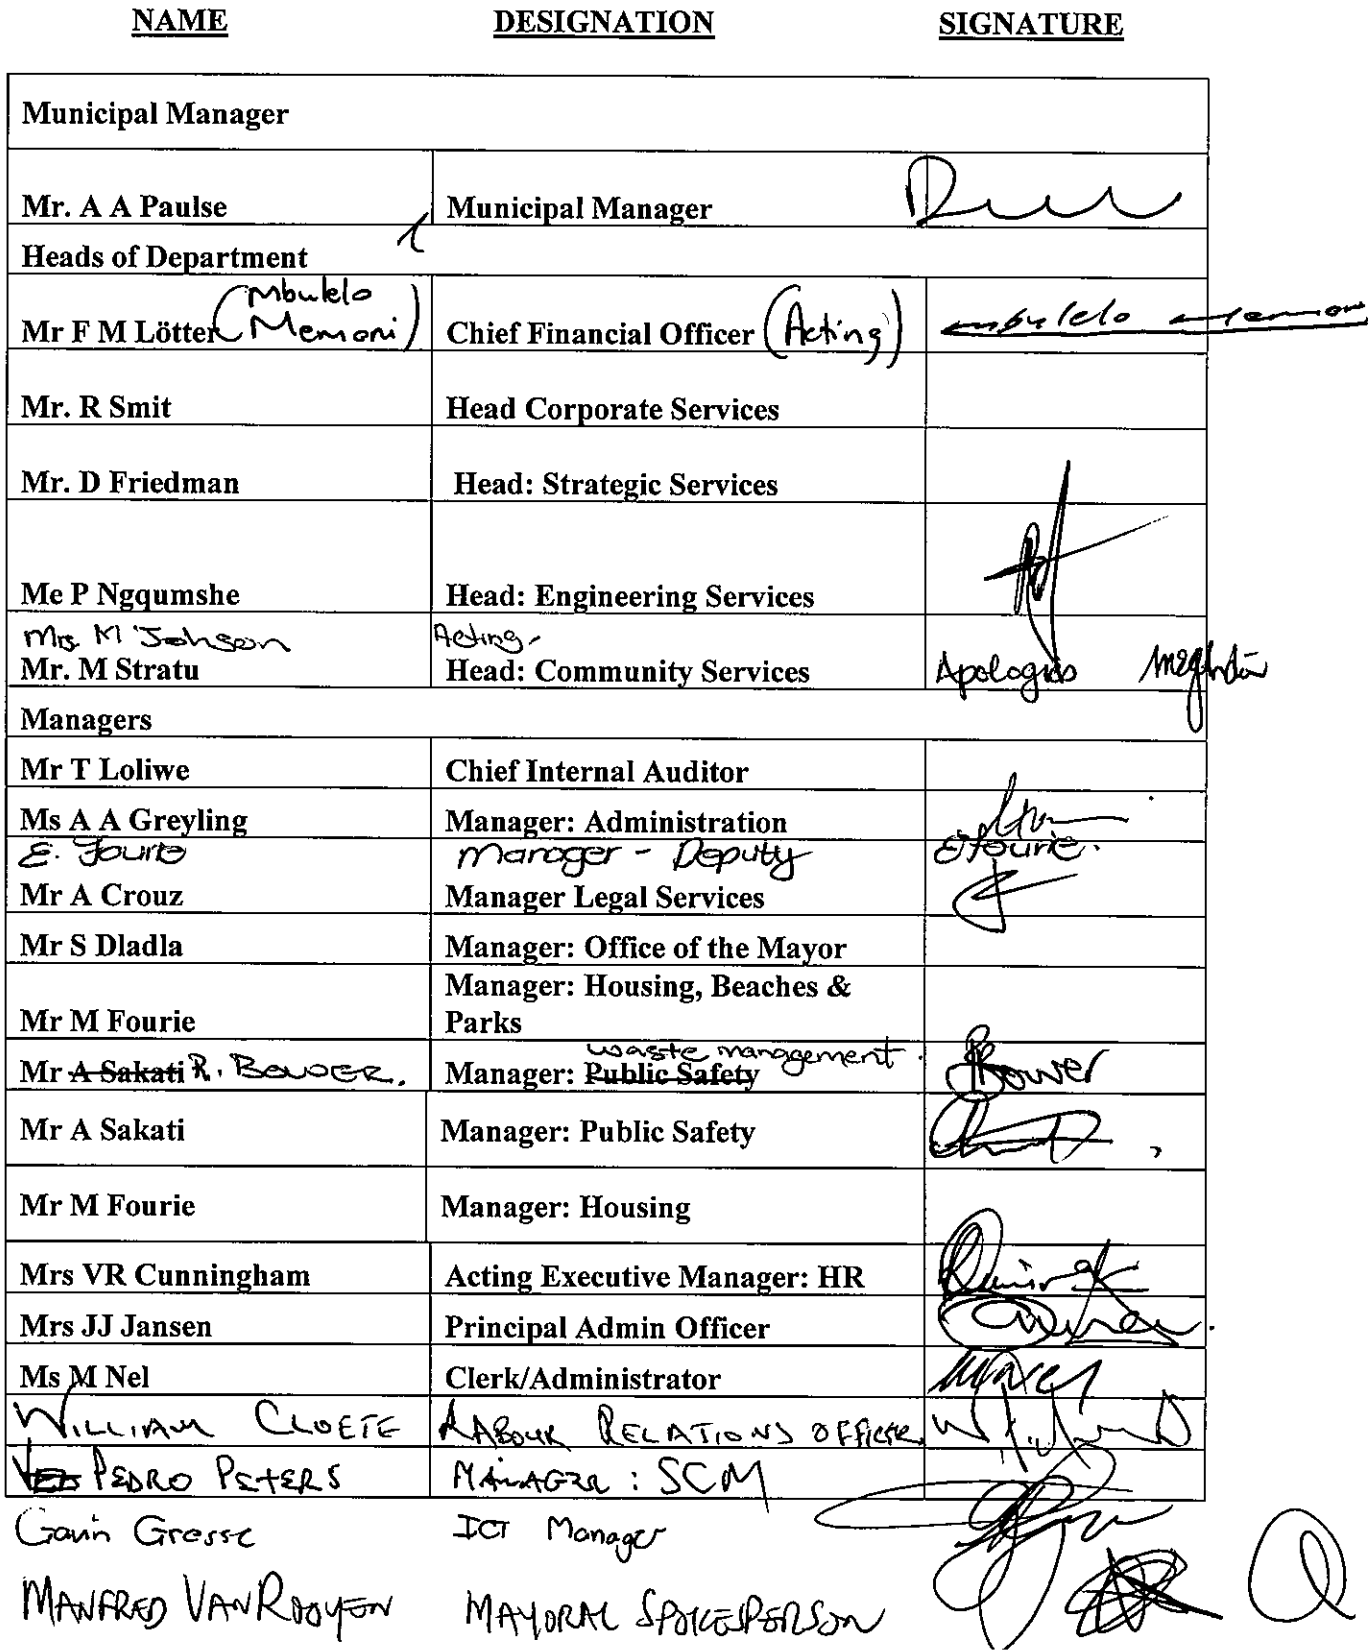 NAME DESIGNATION SIGNATURE
Municipal Manager
Mr. A A Paulse Municipal Manager
Heads of Department
Mr F M Lötter (Mbulelo Memani) Chief Financial Officer (Acting) mbulelo memani
Mr. R Smit Head Corporate Services
Mr. D Friedman Head: Strategic Services
Me P Ngqumshe Head: Engineering Services
Mrs. M Johson Acting-
Mr. M Stratu Head: Community Services Apologies
Managers
Mr T Loliwe Chief Internal Auditor
Ms A A Greyling Manager: Administration
E. Fourie Manager - Deputy E Fourie.
Mr A Crouz Manager Legal Services
Mr S Dladla Manager: Office of the Mayor
Manager: Housing, Beaches &
Mr M Fourie Parks
waste management.
Mr A Sakati R. BOWER. Manager: Public Safety RBower
Mr A Sakati Manager: Public Safety
Mr M Fourie Manager: Housing
Mrs VR Cunningham Acting Executive Manager: HR
Mrs JJ Jansen Principal Admin Officer
Ms M Nel Clerk/Administrator
WILLIAM CLOETE LABOUR RELATIONS OFFICER
PEDRO PETERS MANAGER : SCM
Gavin Gresse ICT Manager
MANFRED VAN ROOYEN MAYORAL SPOKESPERSON